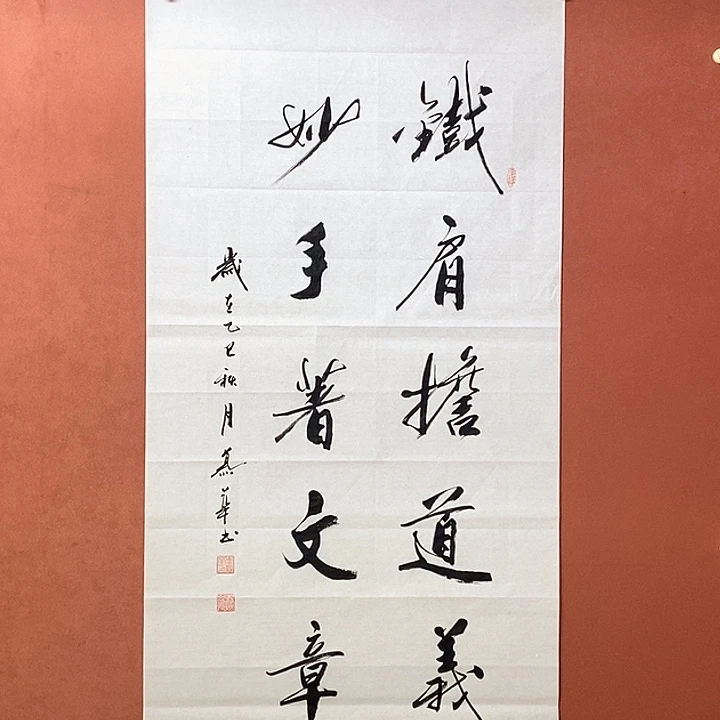 鐵肩擔道義
妙手著文章
歲在乙巳秋月慕華书